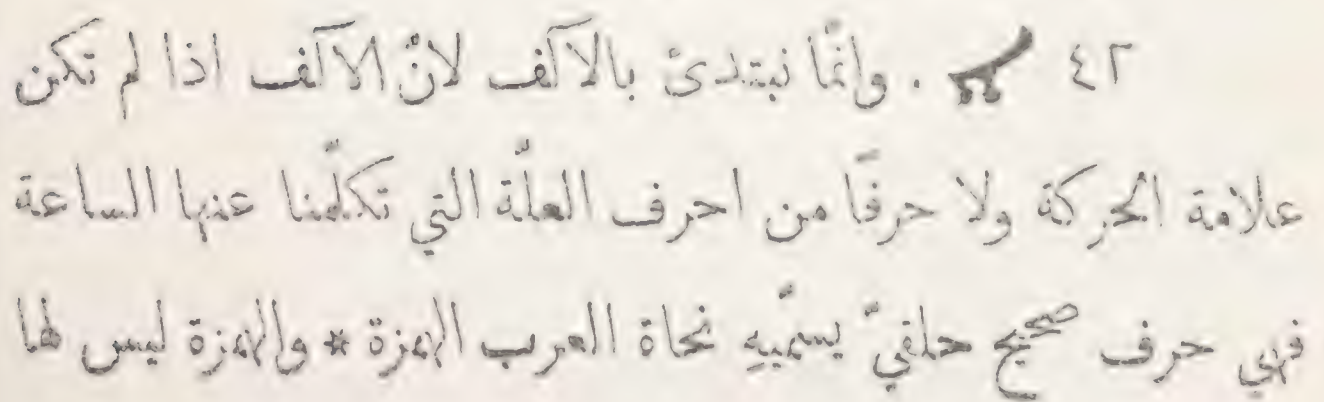 ٤٢ ܐ . وانَّما نبتدئ بالآلف لانّ الآلف اذا لم تكن
علامة الحركة ولا حرفًا من احرف العلّة التي تكلّمنا عنها الساعة
فهي حرف صحيح حلقيّ يسمّيهِ نحاة العرب الهمزة * والهمزة ليس لها